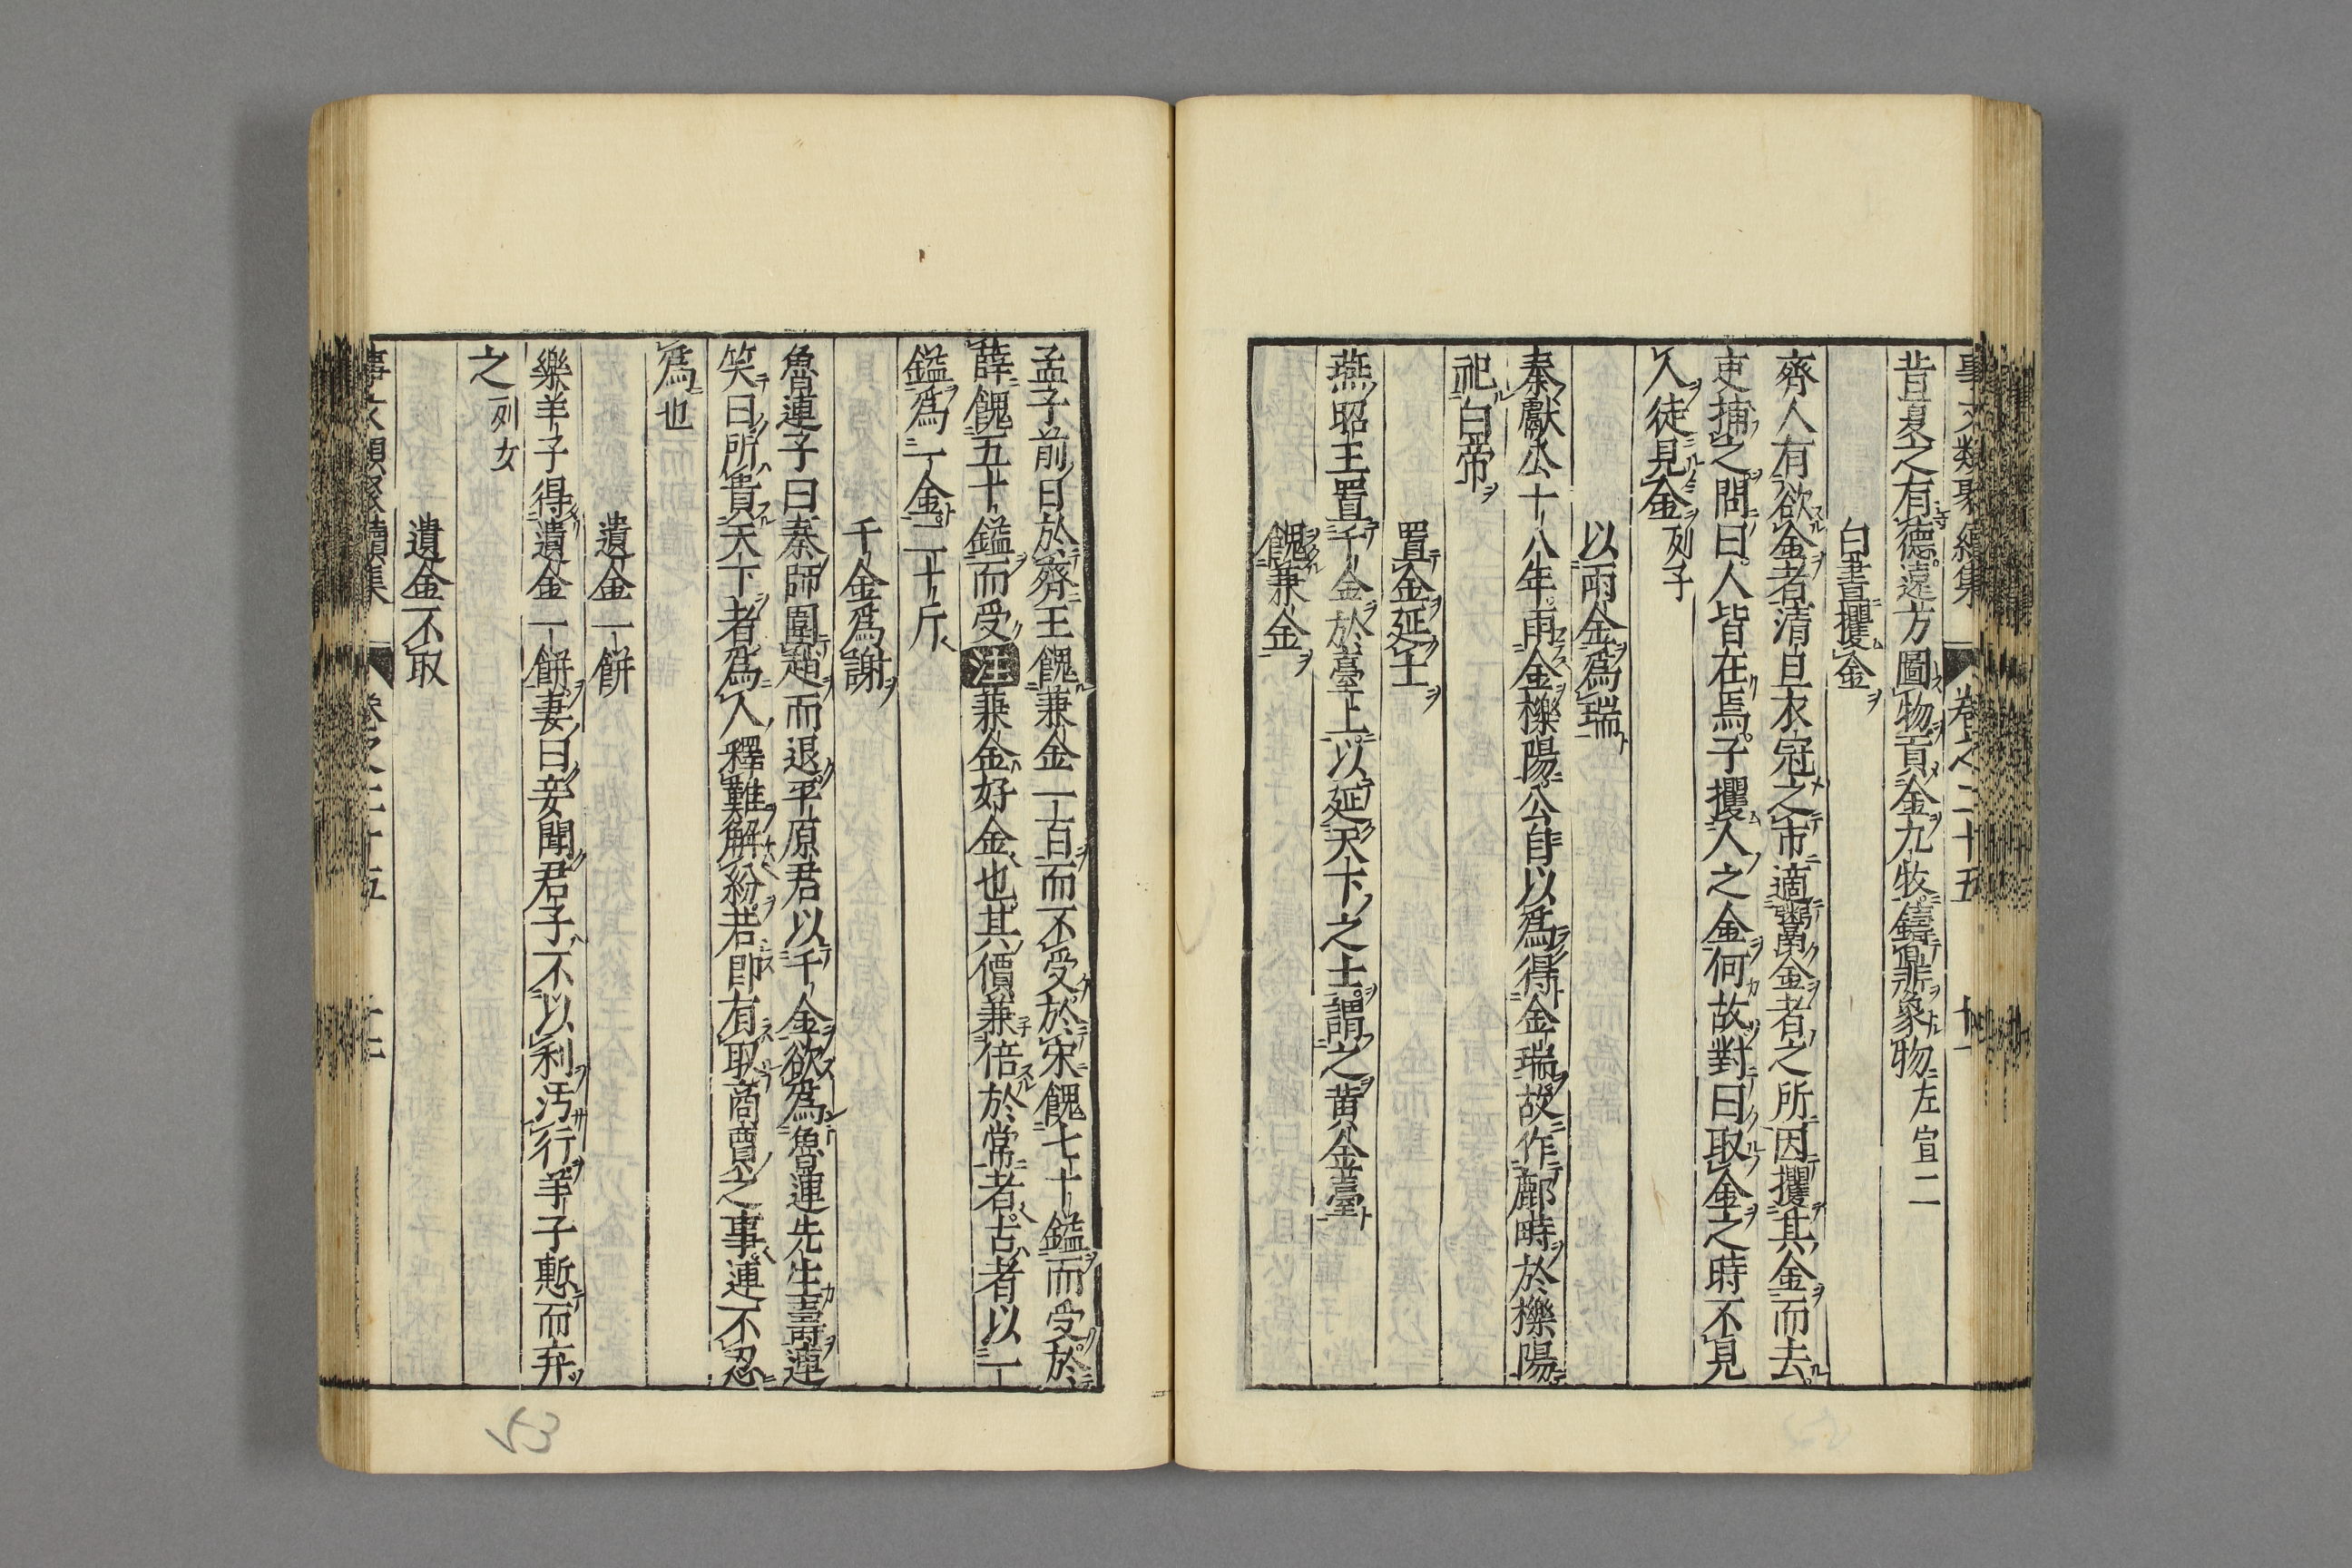 事文類聚續集 卷之二十五 十一
昔夏之有德遠方圖物貢金九牧鑄鼎象物左宣二
白晝攫金
齊人有欲金者清旦衣冠之市適鬻金者之所因攫其金而去
吏捕之問曰人皆在焉子攫人之金何故對曰取金之時不見
人徒見金列子
以雨金爲瑞
秦獻公十八年雨金櫟陽公自以爲得金瑞故作鄜畤於櫟陽
祀白帝
置金延士
燕昭王置千金於臺上以延天下之士謂之黄金臺
餽兼金
孟子前日於齊王餽兼金一百而不受於宋餽七十鎰而受於
薛餽五十鎰而受注兼金好金也其價兼倍於常者古者以一
鎰爲一金二十斤
千金爲謝
魯連子曰秦師圍趙而退平原君以千金欲爲魯連先生壽連
笑曰所貴天下者爲人釋難解紛若即有取商賣之事連不忍
爲也
遺金一餅
樂羊子得遺金一餅妻曰妾聞君子不以利汚行羊子慙而弃
之列女
遺金不取
事文類聚續集 卷之二十五